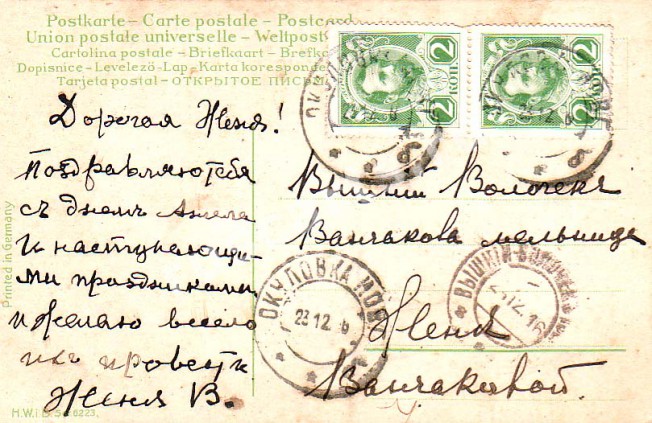 Postkarte – Carte postale – Postcard
Union postale universelle – Weltpost
Cartolina postale – Briefkaart – Brefko
Dopisnice – Levelező-Lap – Karta korespon
Tarjeta postal – ОТКРЫТОЕ ПИСЬ
2 КОП 2
2 КОП 2
ОКУЛОВКА
23 12
Дорогая Женя!
Поздравляю тебя
съ днемъ Ангела
и наступающи-
ми праздниками
и желаю весело
ихъ провести
Женя В.
Вышній Волочекъ
Ванчакова мельница
Женя
Ванчаковой.
ОКУЛОВКА НОВ
23 12 6
ВЫШНІЙ ВОЛОЧЕКЪ
12.16
Printed in Germany
H.W.i.B. S. 6223.